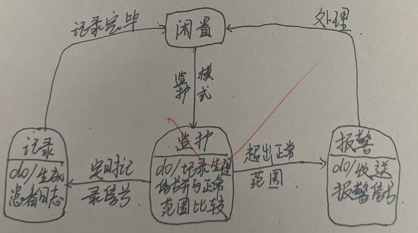 闲置
记录完毕
处理
监护
模式
记录
do/生成
患者日志
定时记
录信号
监护
do/记录生理
信号并与正常
范围比较
超出正常
范围
报警
do/发送
报警信号